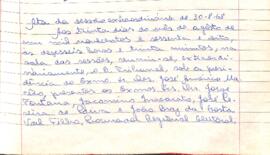 Ata da sessão extraordinária de 30-8-68
Aos trinta dias do mês de agôsto de
mil novecentos e sessenta e oito,
as dezesseis horas e trinta minutos, na
sala das sessões, reuniu-se, extraordi-
nariamente, o E. Tribunal, sob a presi-
dência do Exmo. Sr. Des. José Américo Ma-
cêdo, presentes os Exmos. Srs. Drs. Jorge
Fontana, Jacomino Inacarato, José Pe-
reira de Paiva e João Bray da Costa
Val Filho, Procurador Regional Eleitoral.